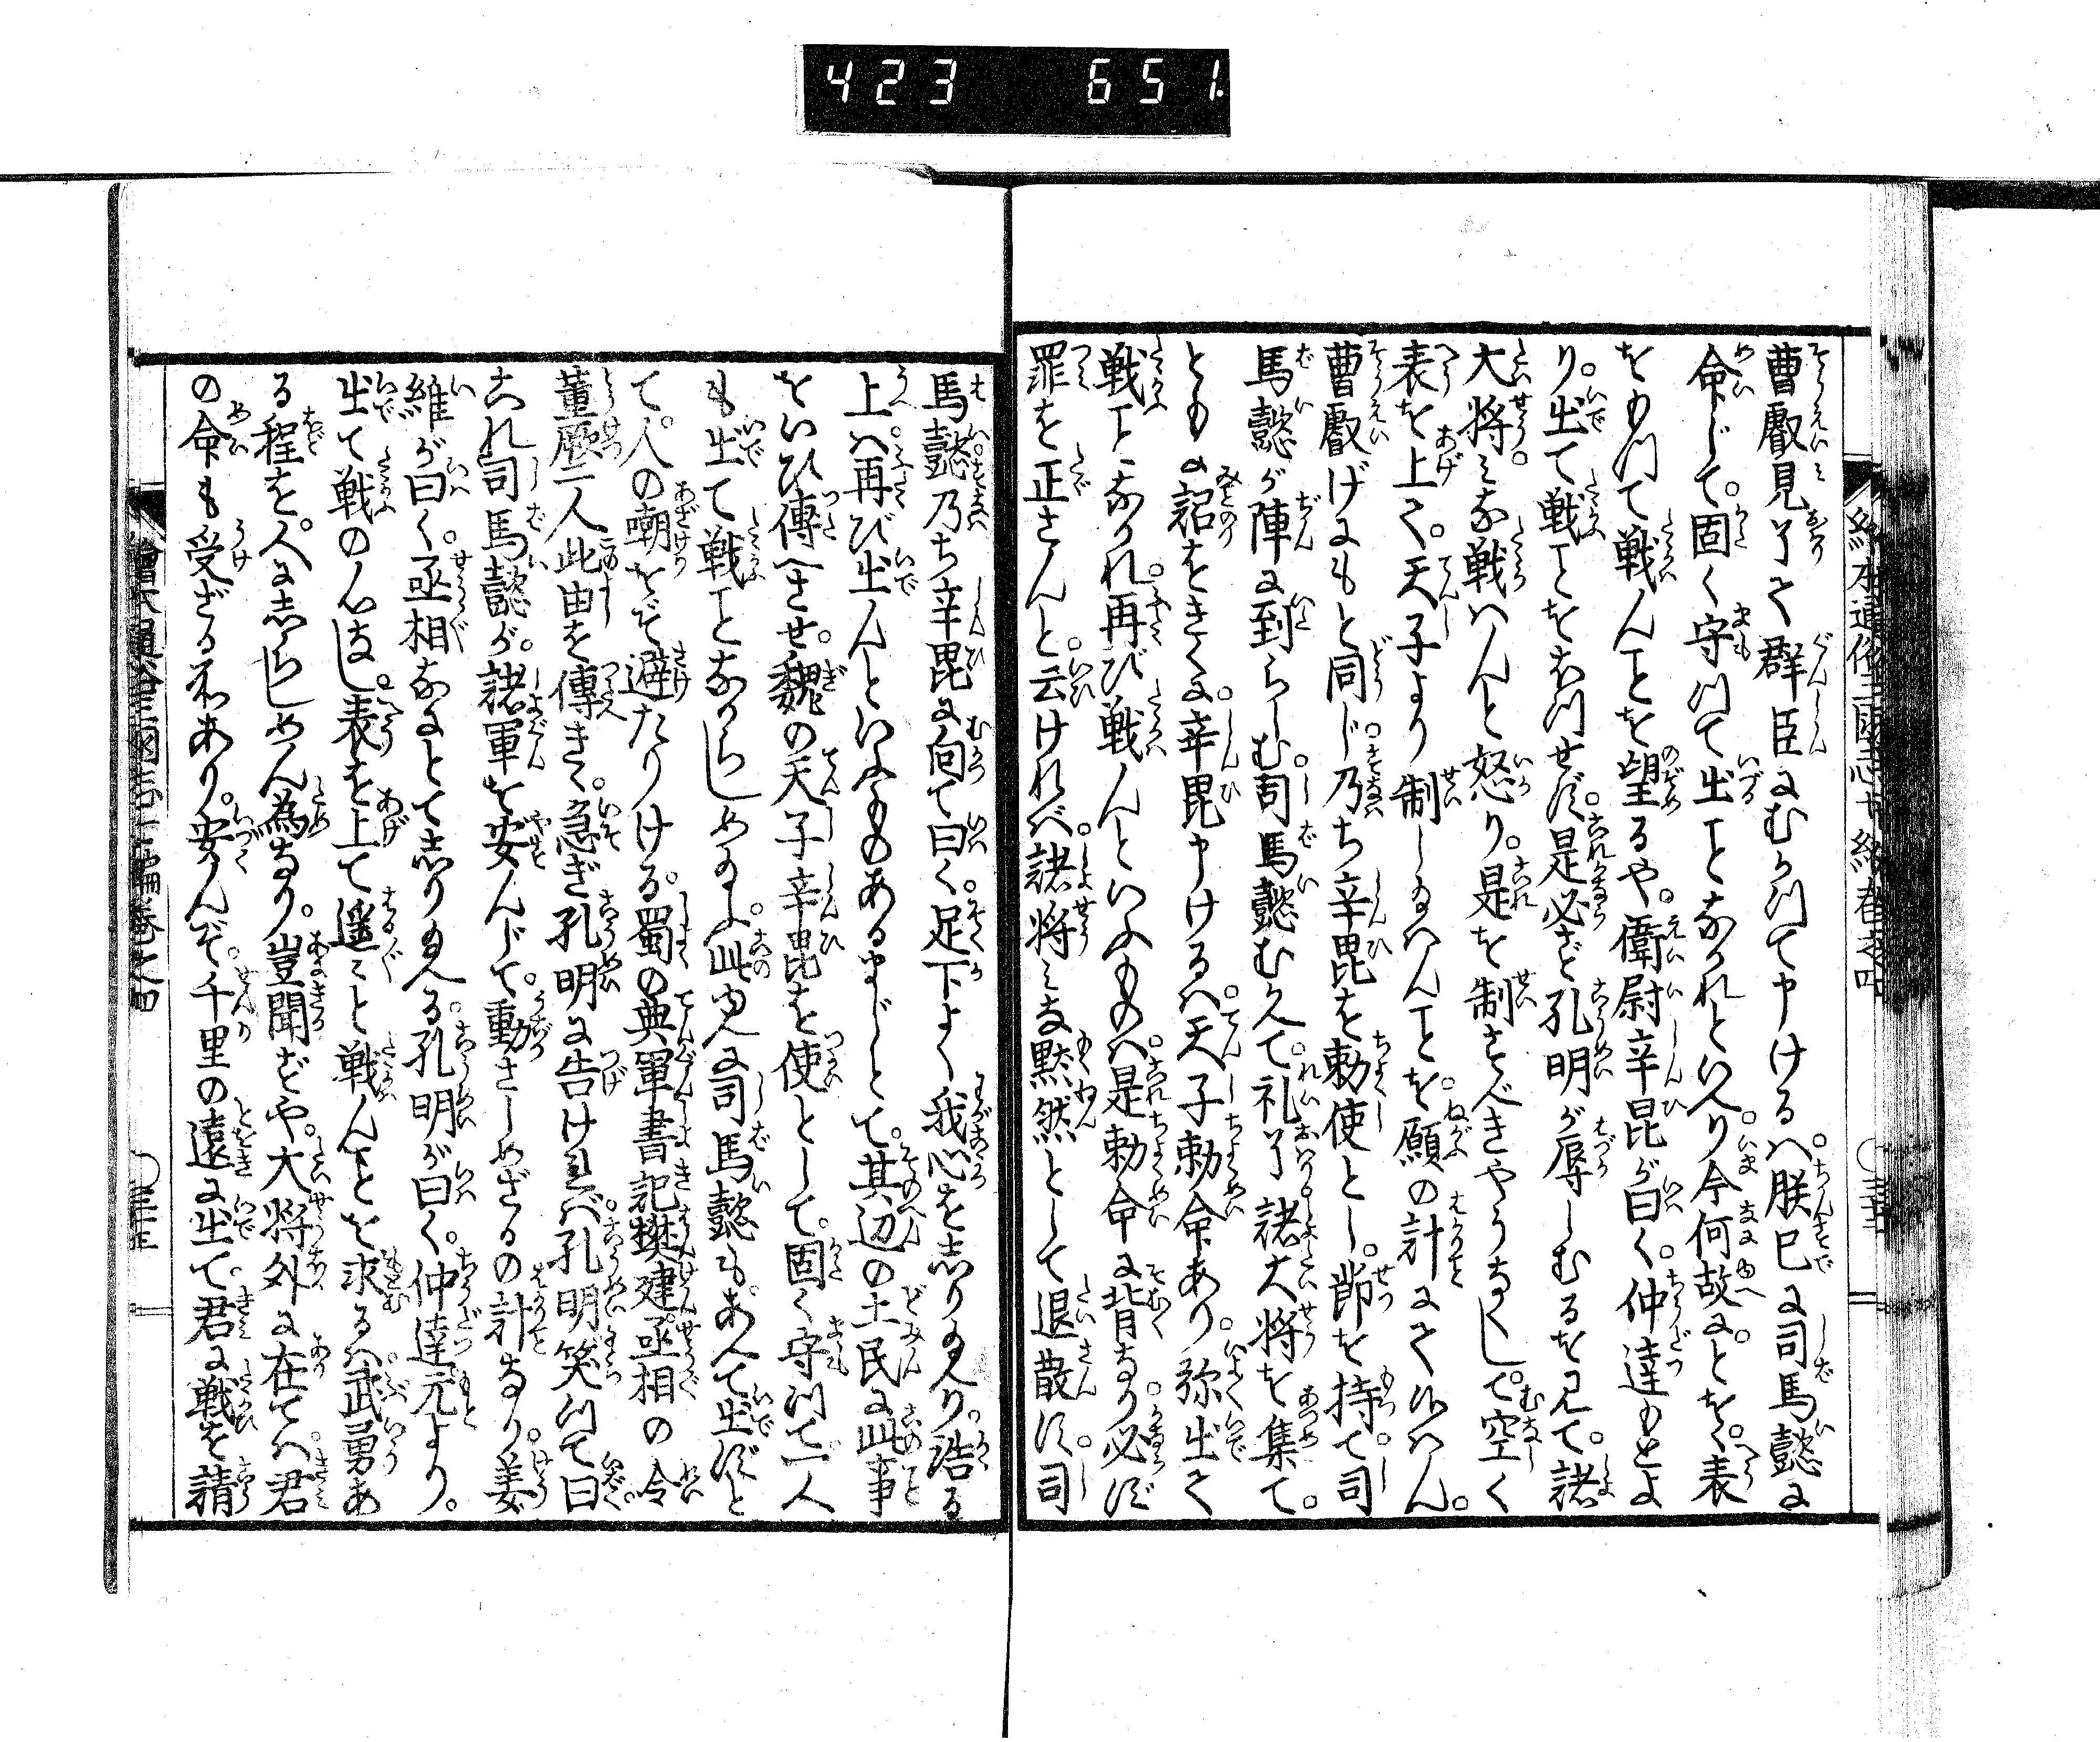 423 651.
曹叡見了て群臣にむかつて申けるハ。朕已に司馬懿に
命じて。固く守つて出ことなかれといへり今何故に。とを〳〵表
をもつて戦んことを望るや。衛尉辛毘が曰く。仲達もとよ
り。出て戦ことをおつせず。是必ず孔明が辱しむるを見て。諸
大将ミな戦ハんと怒り。是を制すべきやうなくして。空く
表を上て。天子より制し玉ハんことを。願の計にて候ハん。
曹叡げにもと同じ。乃ち辛毘を勅使とし。節を持て司
馬懿が陣に到らしむ。司馬懿むかへて。礼了諸大将を集て。
ともに詔をきくに。辛毘申けるハ。天子勅命あり。弥出て
戦ことなかれ。再び戦んといふものハ。是勅命に背なり必ず
罪を正さんと。云けれバ。諸将ミな黙然として退散す。司
馬懿乃ち辛毘に向て曰く。足下よく我心をしり玉へり。浩る
上ハ。再び出んといふものあるまじとて。其辺の土民に此事
をいひ傳へさせ。魏の天子辛毘を使として。固く守つて。一人
も出て戦ことなからしめ玉ふ。此ゆへに司馬懿も。あへて出ずと
て。人の嘲をぞ避たりける。蜀の典軍書記樊建。丞相の令
董厥二人此由を傳きく。急ぎ孔明に告けれバ。孔明笑つて曰
これ司馬懿が。諸軍を安んじて。動さしめざるの計なり。姜
維が曰く。丞相なにとてしり玉へる。孔明が曰く。仲達元より。
出て戦の心なし。表を上て遥〻と戦んことを求るハ。武勇あ
る程を。人にしらしめん為なり。豈聞ずや。大将外に在てハ。君
の命も受ざる所あり。安んぞ。千里の遠に出て。君に戦を請